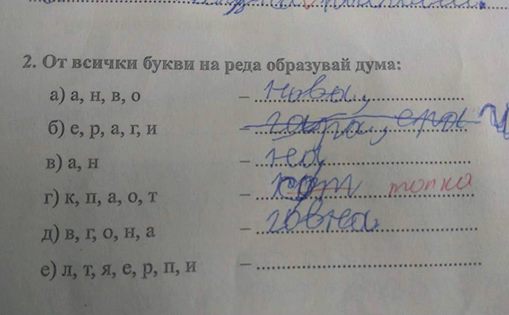 2. От всички букви на реда образувай дума:
а) а, н, в, о – нова,
б) е, р, а, г, и –
в) а, н – на,
г) к, п, а, о, т – кот топка
д) в, г, о, н, а – говна.
е) л, т, я, е, р, п, и –